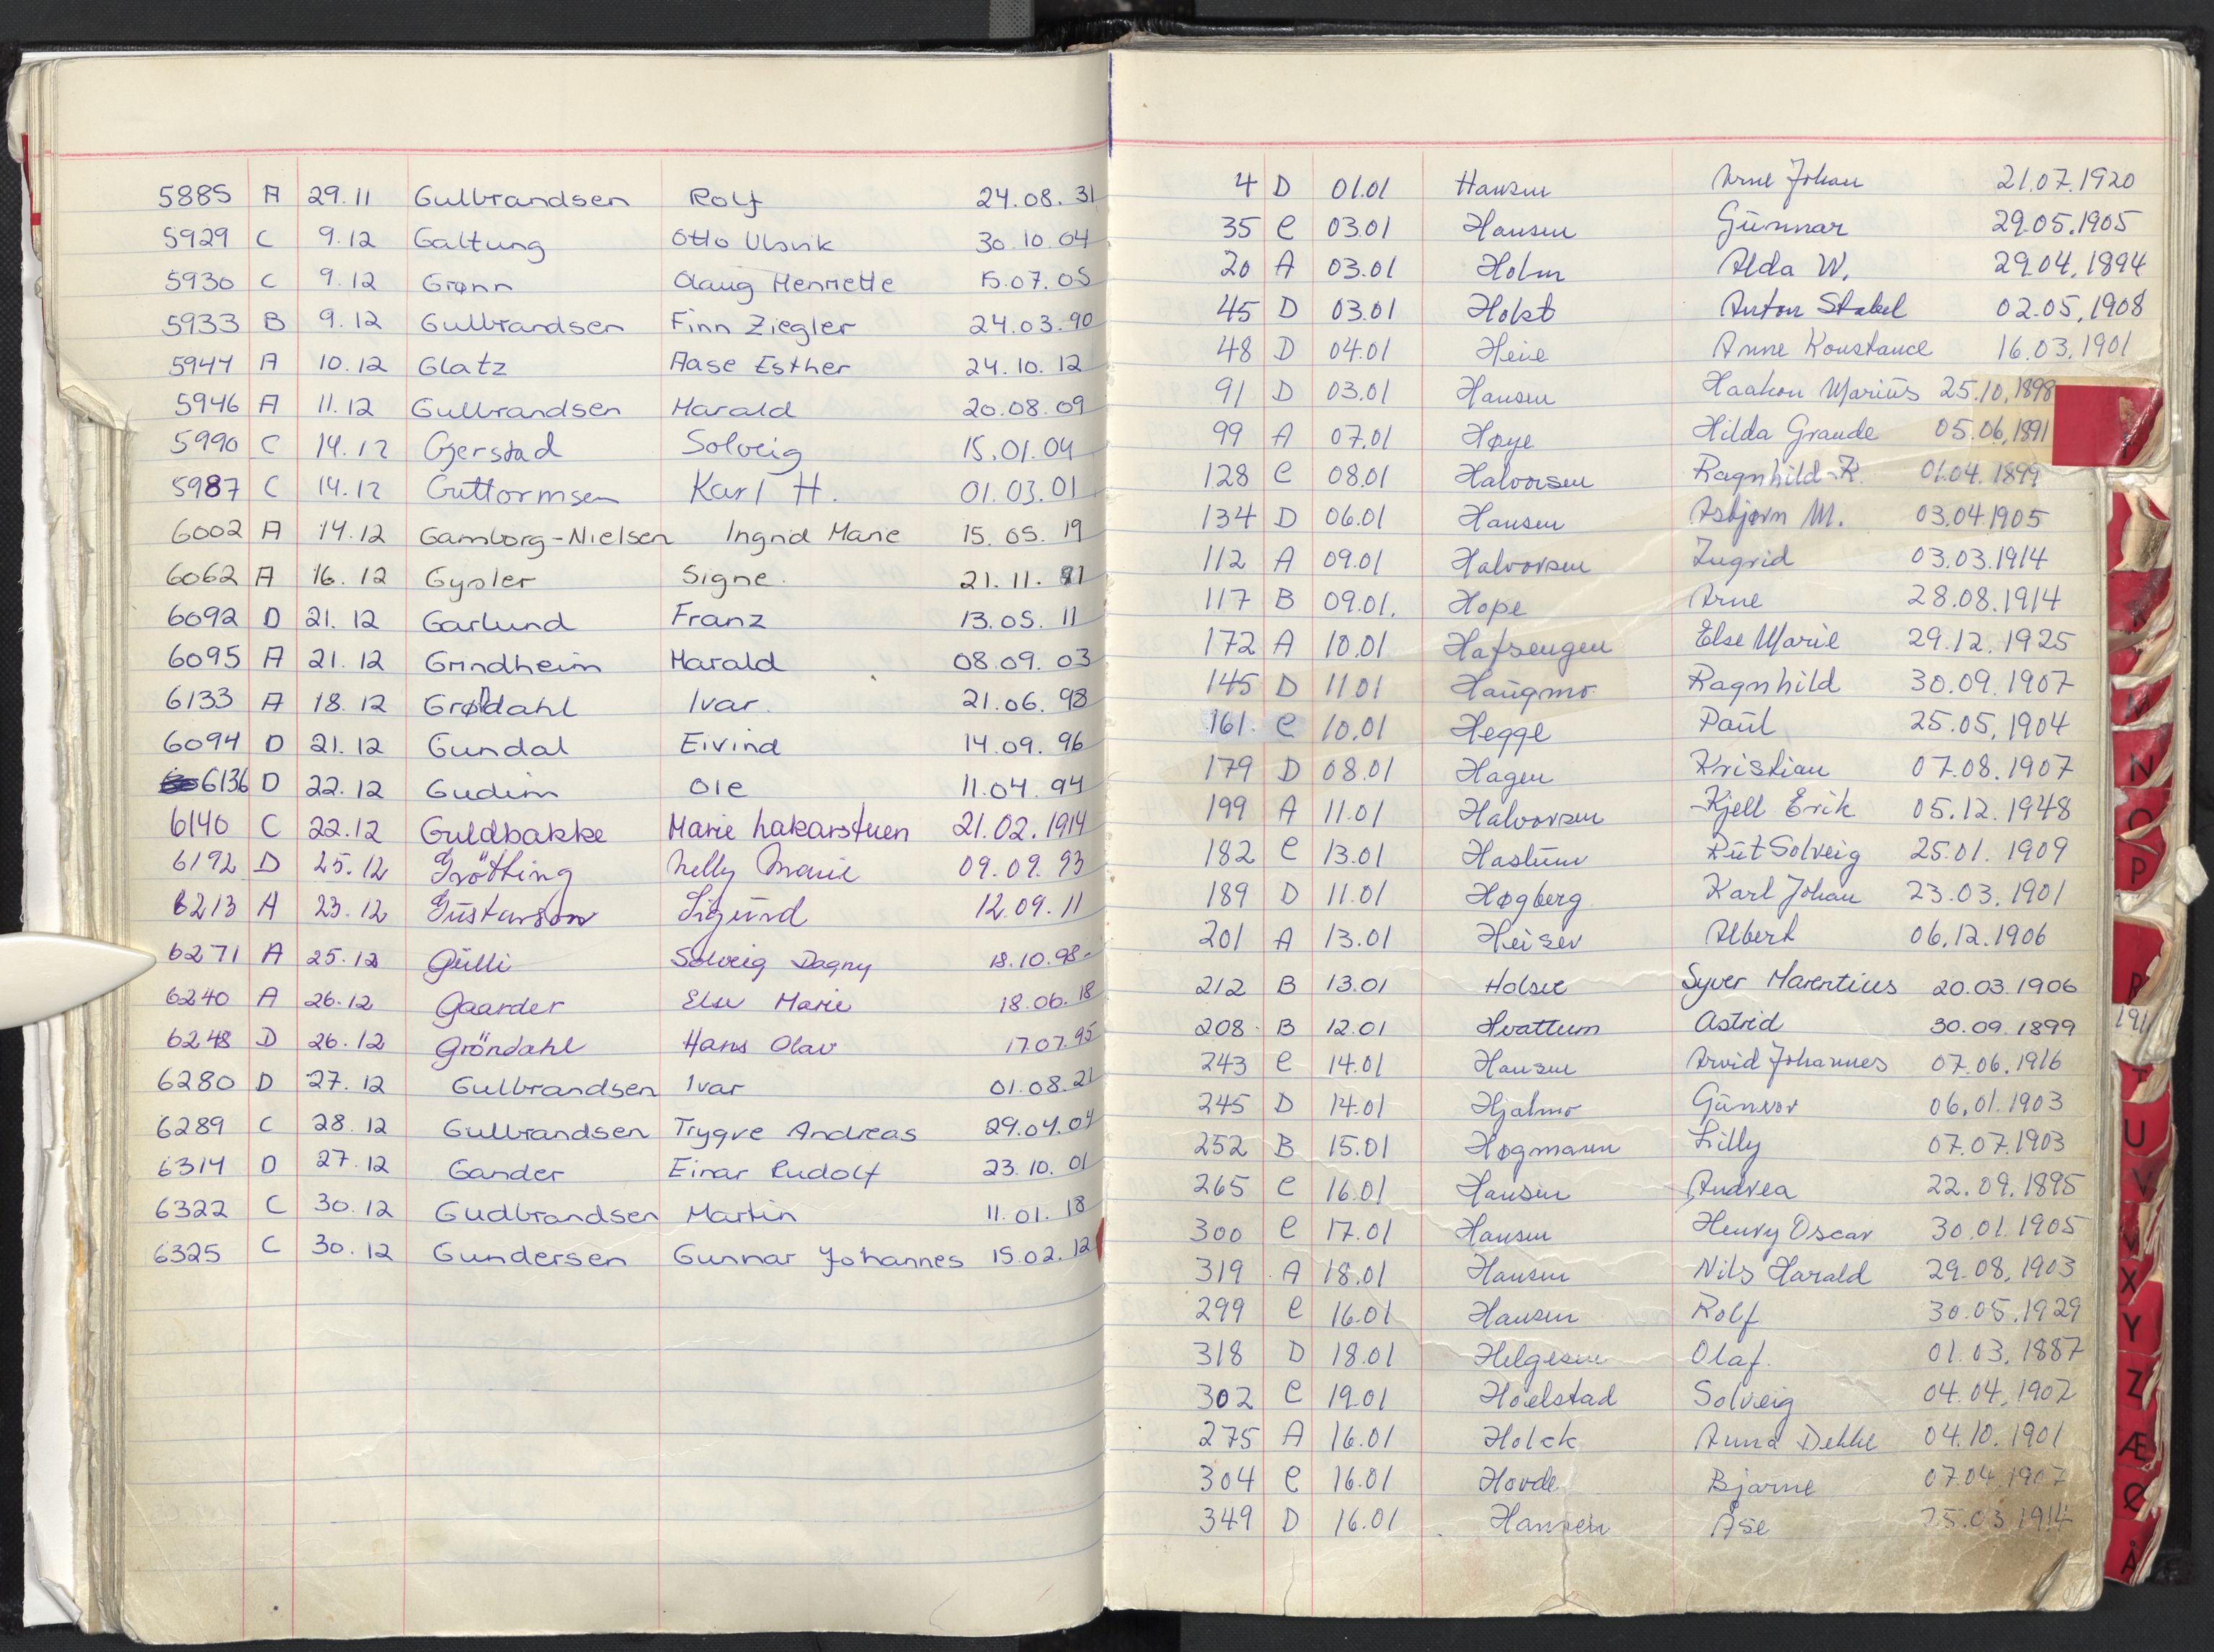 5885 A 29.11 Gulbrandsen Rolf 24.08.31
5929 C 9.12 Galtung Otto Ulsvik 30.10.04
5930 C 9.12 Grønn Olaug Henriette 15.07.05
5933 B 9.12 Gulbrandsen Finn Ziegler 24.03.90
5944 A 10.12 Glatz Aase Esther 24.10.12
5946 A 11.12 Gulbrandsen Harald 20.08.09
5990 C 14.12 Gjerstad Solveig 15.01.04
5987 C 14.12 Guttormsen Karl H. 01.03.01
6002 A 14.12 Gamborg-Nielsen Ingrid Marie 15.05.19
6062 A 16.12 Gysler Signe 21.11.
6092 D 21.12 Garlund Franz 13.05.11
6095 A 21.12 Grindheim Harald 08.09.03
6133 A 18.12 Grøndahl Ivar 21.06.98
6094 D 21.12 Gundal Eivind 14.09.96
6136 D 22.12 Gudim Ole 11.04.94
6140 C 22.12 Guldbakke Marie Lakarstuen 21.02.1914
6192 D 25.12 Grötting Nelly Marie 09.09.93
6213 A 23.12 Gustavson Sigurd 12.09.11
6271 A 25.12 Gulli Solveig Dagny 18.10.98
6240 A 26.12 Gaarder Else Marie 18.06.18
6248 D 26.12 Gröndahl Hans Olav 17.07.95
6280 D 27.12 Gulbrandsen Ivar 01.08.21
6289 C 28.12 Gulbrandsen Trygve Andreas 29.04.04
6314 D 27.12 Gander Einar Rudolf 23.10.01
6322 C 30.12 Gudbrandsen Martin 11.01.18
6325 C 30.12 Gundersen Gunnar Johannes 15.02.12
4 D 01.01 Hansen Arne Johan 21.07.1920
35 C 03.01 Hansen Gunnar 29.05.1905
20 A 03.01 Holm Alda W. 29.04.1894
45 D 03.01 Holst Anton Stabel 02.05.1908
48 D 04.01 Heie Anne Konstance 16.03.1901
91 D 03.01 Hansen Haakon Marius 25.10.1898
99 A 07.01 Høye Hilda Grande 05.06.1891
128 C 08.01 Halvorsen Ragnhild R. 01.04.1899
134 D 06.01 Hansen Asbjørn M. 03.04.1905
112 A 09.01 Halvorsen Ingrid 03.03.1914
117 B 09.01. Hope Arne 28.08.1914
172 A 10.01 Hafsengen Else Marie 29.12.1925
145 D 11.01 Haugmo Ragnhild 30.09.1907
161. C 10.01 Hegge Paul 25.05.1904
179 D 08.01 Hagen Kristian 07.08.1907
199 A 11.01 Halvorsen Kjell Erik 05.12.1948
182 C 13.01 Haslum Rut Solveig 25.01.1909
189 D 11.01 Høgberg Karl Johan 23.03.1901
201 A 13.01 Heiser Albert 06.12.1906
212 B 13.01 Holsee Syver Marentius 20.03.1906
208 B 12.01 Hvattum Astrid 30.09.1899
243 C 14.01 Hansen Arvid Johannes 07.06.1916
245 D 14.01 Hjalmo Gunvor 06.01.1903
252 B 15.01 Høgmann Lilly 07.07.1903
265 C 16.01 Hansen Andrea 22.09.1895
300 C 17.01 Hansen Henry Oscar 30.01.1905
319 A 18.01 Hansen Nils Harald 29.08.1903
299 C 16.01 Hansen Rolf 30.05.1929
318 D 18.01 Helgesen Olaf. 01.03.1887
302 C 19.01 Hoelstad Solveig 04.04.1902
275 A 16.01 Holck Anna 04.10.1901
304 C 16.01 Hovde Bjarne 07.04.1907
349 D 16.01 Hansen Åse 03.1914
M
N
O
P
R
191
T
U
V
X
Y
Z
Æ
Ø
Å